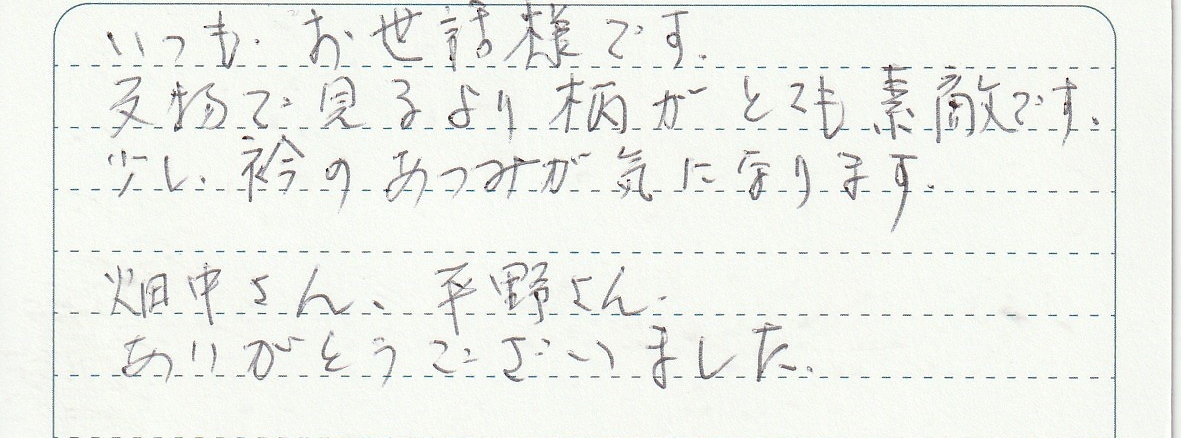 いつも お世話様です.
反物で見るより柄がとても素敵です.
少し 衿のあつみが気になります.
畑中さん、平野さん.
ありがとうございました.